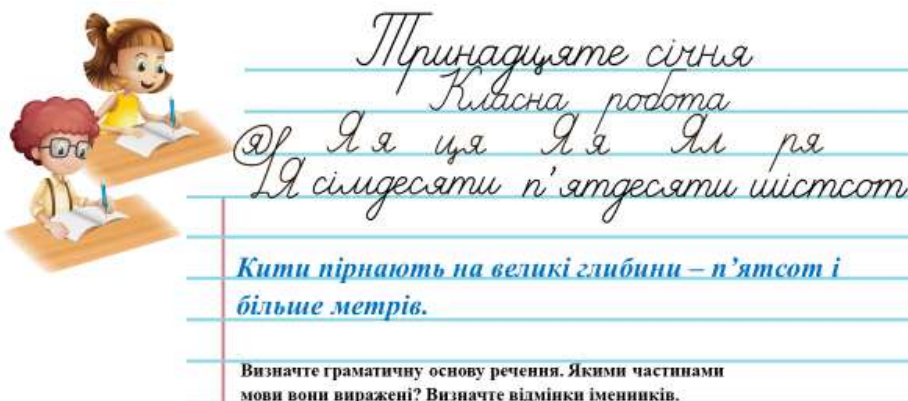 Тринадцяте січня
Класна робота
я Я я ця Я я Ял ря
Я сімдесяти п’ятдесяти шістсот
Кити пірнають на великі глибини – п’ятсот і
більше метрів.
Визначте граматичну основу речення. Якими частинами
мови вони виражені? Визначте відмінки іменників.